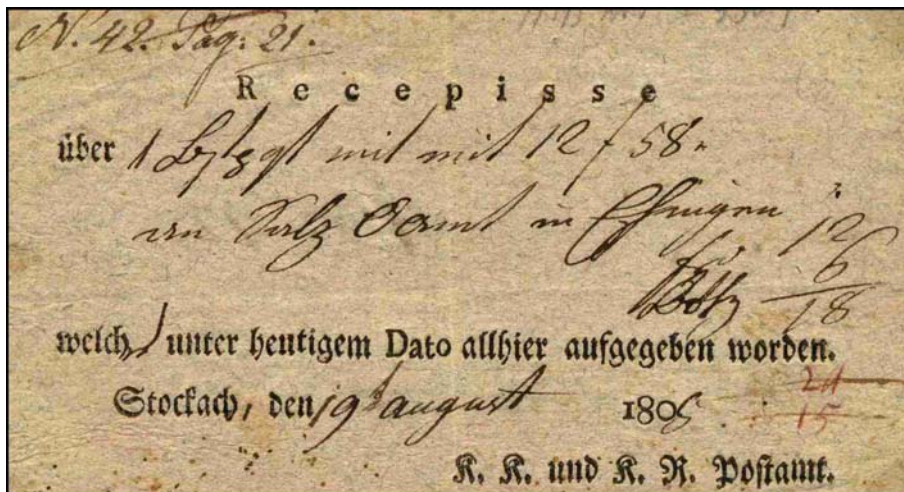 N. 42. Pag. 21.
Recepisse
über 1 mit mit 12 f 58
an Salz Oamt in Ehingen 12
6
18
welch unter heutigem Dato allhier aufgegeben worden.
24
Stockach, den 19 august 180
15
K. K. und K. R. Postamt.